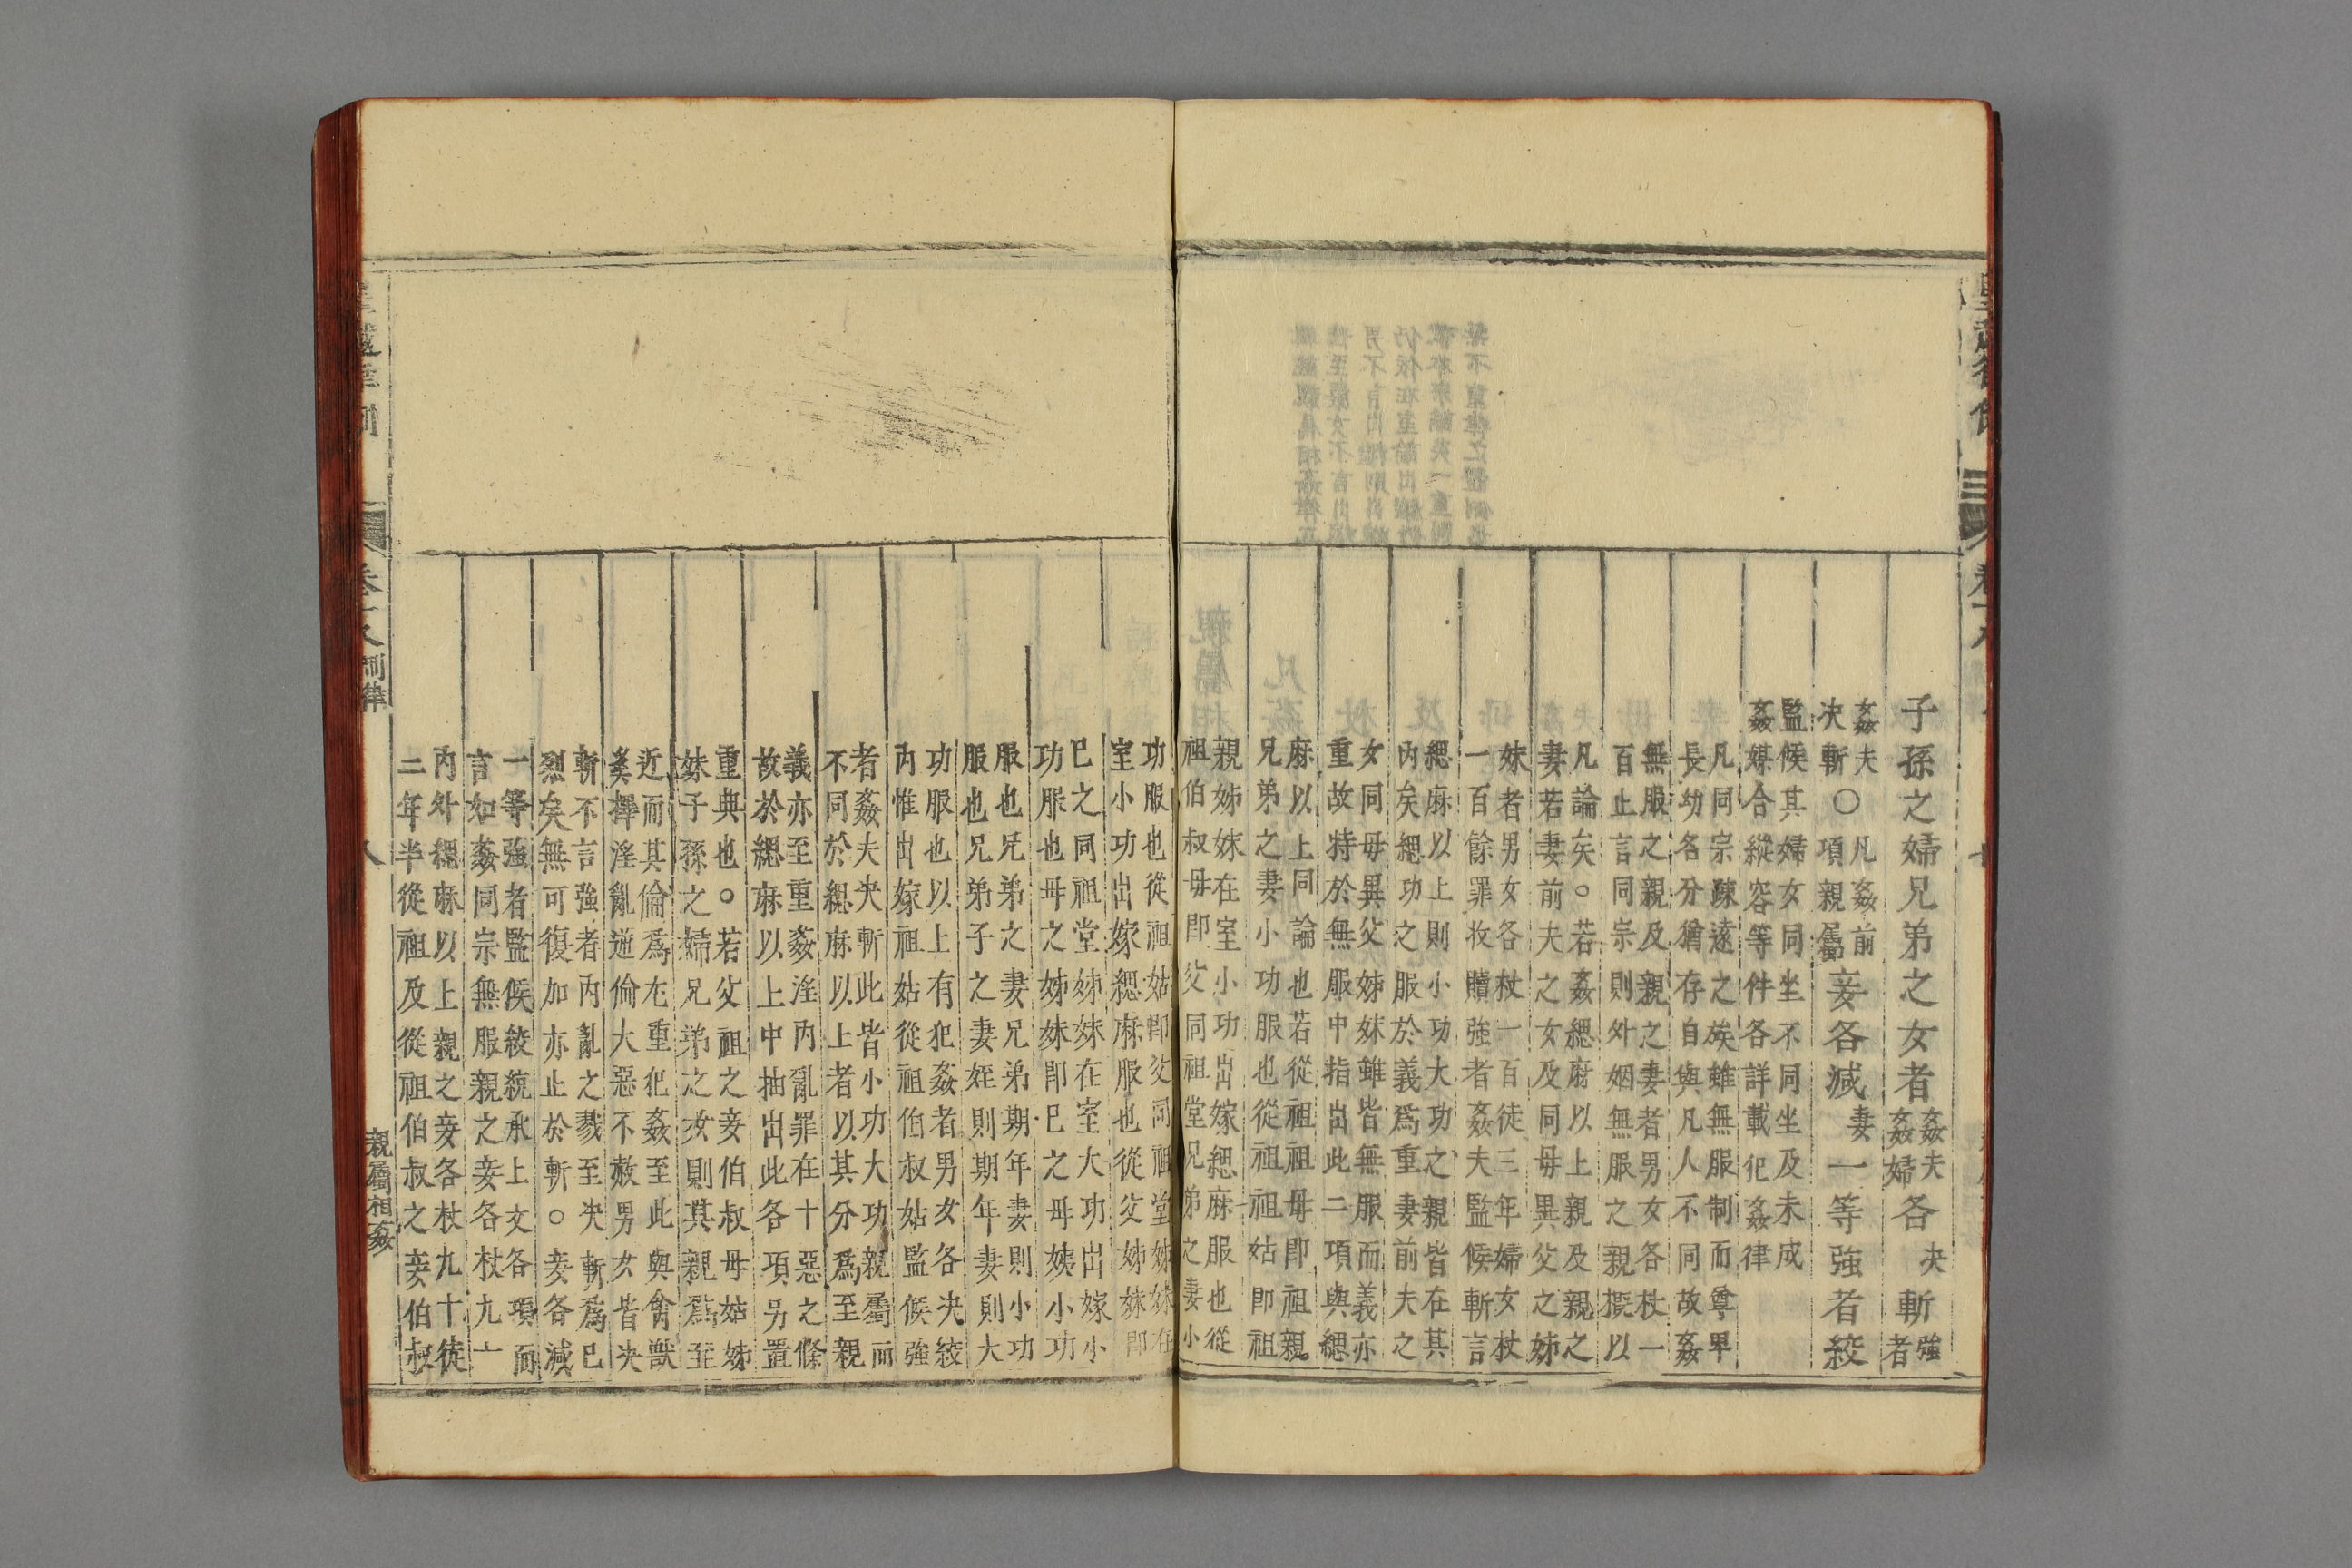 子孫之婦兄弟之女者姦夫姦婦各決斬強者
姦夫決斬○凡姦前項親屬妾各減妻一等強者絞
監候其婦女同坐不同坐及未成
姦媒合縱容等件各詳載犯姦律
凡同宗疎遠之族雖無服制而尊卑
長幼名分猶存自與凡人不同故姦
無服之親及親之妻者男女各杖一
百止言同宗則外姻無服之親概以
凡論矣。若姦緦麻以上親及親之
妻若妻前夫之女及同母異父之姊
妹者男女各杖一百徒三年婦女杖
一百餘罪收贖強者姦夫監候斬言
緦麻以上則小功大功之親皆在其
內矣緦功之服於義爲重妻前夫之
女同母異父姊妹雖皆無服而義亦
重故特於無服中指出此二項與緦
麻以上同論也若從祖祖母即祖親
兄弟之妻小功服也從祖祖姑即祖
親姊妹在室小功出嫁緦麻服也從
祖伯叔母即父同祖堂兄弟之妻小
功服也從祖姑即父同祖堂姊妹在
室小功出嫁緦麻服也從父姊妹即
巳之同祖堂姊妹在室大功出嫁小
功服也母之姊妹即巳之母姨小功
服也兄弟之妻兄弟期年妻則小功
服也兄弟子之妻姪則期年妻則大
功服也以上有犯姦者男女各決絞
內惟出嫁祖姑從祖伯叔姑監候強
者姦夫決斬此皆小功大功親屬而
不同於緦麻以上者以其分爲至親
義亦至重姦淫內亂罪在十惡之條
故於緦麻以上中抽出此各項另置
重典也。若父祖之妾伯叔母姑姊
妹子孫之婦兄弟之女則其親爲至
近而其倫爲尤重犯姦至此與禽獸
奚擇淫亂逆倫大惡不赦男女皆決
斬不言強者內亂之戮至決斬爲已
烈矣無可復加亦止於斬。妾各減
一等強者監候絞統承上文各項而
言如姦同宗無服親之妾各杖九十
內外緦麻以上親之妾各杖九十徒
二年半從祖及從祖伯叔之妾伯叔
卷十八 刑律 八 親屬相姦